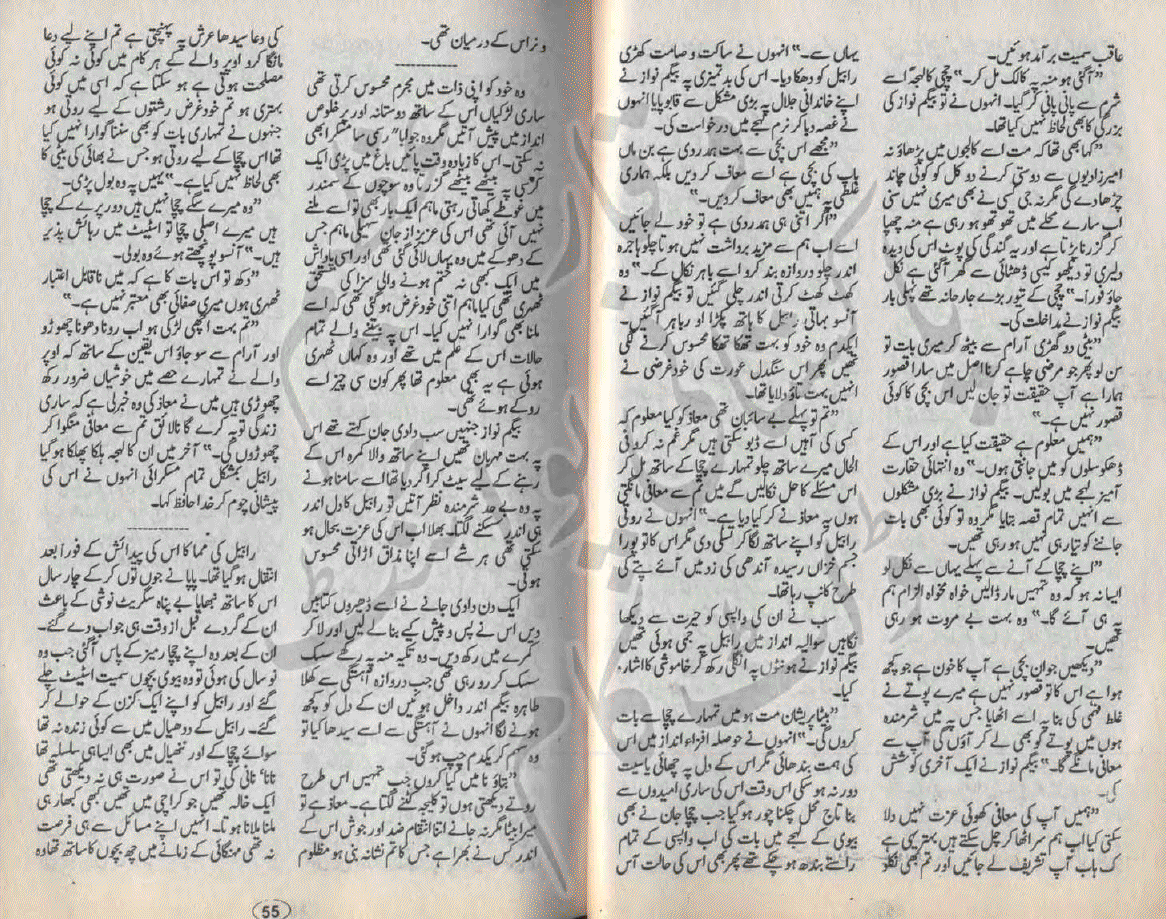 عاقب سمیت برآمد ہوئیں۔
”آگئی ہو منہ پہ کالک مل کر۔“ چچی کا لہجہ اسے
شرم سے پانی پانی کر گیا۔ انہوں نے تو بیگم نواز کی
بزرگی کا بھی لحاظ نہیں کیا تھا۔
”کہا بھی تھا کہ مت اسے کالجوں میں پڑھاؤ نہ
امیر زادیوں سے دوستی کرنے دو کل کو کوئی چاند
چڑھا دے گی مگر نہ جی کسی نے بھی میری نہیں سنی
اب سارے محلے میں تھو تھو ہو رہی ہے منہ چھپا
کر گزرنا پڑتا ہے اور یہ گندگی کی پوٹ اس کی دیدہ
دلیری تو دیکھو کیسی ڈھٹائی سے گھر آگئی ہے نکل
جاؤ فوراً۔“ چچی کے تیور بڑے جارحانہ تھے پہلی بار
بیگم نواز نے مداخلت کی۔
”بیٹی دو گھڑی آرام سے بیٹھ کر میری بات تو
سن لو پھر جو مرضی چاہے کرنا اصل میں سارا قصور
ہمارا ہے آپ حقیقت تو جان لیں اس بچی کا کوئی
قصور نہیں ہے۔“
”ہمیں معلوم ہے حقیقت کیا ہے اور اس کے
ڈھکوسلوں کو میں جانتی ہوں۔“ وہ انتہائی حقارت
آمیز لہجے میں بولیں۔ بیگم نواز نے بڑی مشکلوں
سے انہیں تمام قصہ بتایا مگر وہ تو کوئی بھی بات
جاننے کو تیار ہی نہیں ہو رہی تھیں۔
”اپنے چچا کے آنے سے پہلے یہاں سے نکل لو
ایسا نہ ہو کہ وہ تمہیں مار ڈالیں خواہ مخواہ الزام ہم
پہ ہی آئے گا۔“ وہ بہت بے مروت ہو رہی
تھیں۔
”دیکھیں جوان بچی ہے آپ کا خون ہے جو کچھ
ہوا ہے اس کا تو قصور نہیں ہے میرے پوتے نے
غلط فہمی کی بنا پہ اسے اٹھایا جس پہ میں شرمندہ
ہوں میں پوتے کو بھی لے کر آؤں گی آپ سے
معافی مانگے گا۔“ بیگم نواز نے ایک آخری کوشش
کی۔
”ہمیں آپ کی معافی کھوئی عزت نہیں دلا
سکتی کیا اب ہم سر اٹھا کر چل سکتے ہیں بہتر یہی ہے
ک ہاب آپ تشریف لے جائیں اور تم بھی نکلو
یہاں سے۔“ انہوں نے ساکت و صامت کھڑی
رابیل کو دھکا دیا۔ اس کی بد تمیزی پہ بیگم نواز نے
اپنے خاندانی جلال پہ بڑی مشکل سے قابو پایا انہوں
نے غصہ دبا کر نرم لہجے میں درخواست کی۔
”مجھے اس بچی سے بہت ہمدردی ہے بن ماں
باپ کی بچی ہے اسے معاف کر دیں بلکہ ہماری
غلطی پہ ہمیں بھی معاف کر دیں۔“
”اگر اتنی ہی ہمدردی ہے تو خود لے جائیں
اسے اب ہم سے مزید برداشت نہیں ہوتا چلو ہاجرہ
اندر چلو دروازہ بند کرو اسے باہر نکال کے۔“ وہ
کھٹ کھٹ کرتی اندر چلی گئیں تو بیگم نواز نے
آنسو بہاتی رابیل کا ہاتھ پکڑا اور باہر آگئیں۔
ایکدم وہ خود کو بہت تھکا تھکا محسوس کرنے لگی
تھیں پھر اس سنگدل عورت کی خود غرضی نے
انہیں بہت تاؤ دلایا تھا۔
”تم تو پہلے بے سائبان تھی معاذ کو کیا معلوم کہ
کسی کی آہیں اسے ڈبو سکتی ہیں مگر غم نہ کرو فی
الحال میرے ساتھ چلو تمہارے چچا کے ساتھ مل کر
اس مسئلے کا حل نکالیں گے میں تم سے معافی مانگتی
ہوں یہ معاذ نے کر کیا دیا ہے۔“ انہوں نے روتی
رابیل کو اپنے ساتھ لگا کر تسلی دی مگر اس کا تو پورا
جسم خزاں رسیدہ آندھی کی زد میں آئے پتے کی
طرح کانپ رہا تھا۔
سب نے ان کی واپسی کو حیرت سے دیکھا
نگاہیں سوالیہ انداز میں رابیل پہ جمی ہوئی تھیں
بیگم نواز نے ہونٹوں پہ انگلی رکھ کر خاموشی کا اشارہ
کیا۔
”بیٹا پریشان مت ہو میں تمہارے چچا سے بات
کروں گی۔“ انہوں نے حوصلہ افزاء انداز میں اس
کی ہمت بندھائی مگر اس کے دل پہ چھائی یاسیت
دور نہ ہو سکی اس وقت اس کی ساری امیدوں سے
بنا تاج محل چکنا چور ہو گیا جب چچا جان نے بھی
بیوی کے لہجے میں بات کی اب واپسی کے تمام
راستے بند ہو چکے تھے پھر بھی اس کی حالت آس
و نراس کے درمیان تھی۔
وہ خود کو اپنی ذات میں مجرم محسوس کرتی تھی
ساری لڑکیاں اس کے ساتھ دوستانہ اور پر خلوص
انداز میں پیش آتیں مگر وہ جواباً” رسمی سا مسکرا بھی
نہ سکتی۔ اس کا زیادہ وقت پائیں باغ میں بڑی ایک
کرسی پہ بیٹھے بیٹھے گزرتا وہ سوچوں کے سمندر
میں غوطے کھاتی رہتی ماہم ایک بار بھی تو اسے ملنے
نہیں آئی تھی اس کی عزیز از جان سہیلی ماہم جس
کے دھوکے میں وہ یہاں لائی گئی تھی اور اسی پاداش
میں ایک کبھی نہ ختم ہونے والی سزا کی مستحق
ٹھہری تھی کیا ماہم اتنی خود غرض ہو گئی تھی کہ اسے
ملنا بھی گوارا نہیں کیا۔ اس پہ بیتنے والے تمام
حالات اس کے علم میں تھے اور وہ کہاں ٹھہری
ہوئی ہے یہ بھی معلوم تھا پھر کون سی چیز اسے
روکے ہوئے تھی۔
بیگم نواز جنہیں سب دادی جان کہتے تھے اس
پہ بہت مہربان تھیں اپنے ساتھ والا کمرہ اس کے
رہنے کے لیے سیٹ کرا کر دیا تھا اسے سامنا ہونے
پہ وہ بے حد شرمندہ نظر آتیں تو رابیل کا دل اندر
ہی اندر سسکنے لگتا۔ بھلا اب اس کی عزت بحال ہو
سکتی تھی ہر شے اسے اپنا مذاق اڑاتی محسوس
ہوتی۔
ایک دن دادی جانے نے اسے ڈھیروں کتابیں
دیں اس نے پس و پیش کیے بنا لے لیں اور لا کر
کمرے میں رکھ دیں۔ وہ تکیہ منہ پہ رکھے سسک
سسک کر رو رہی تھی جب دروازہ آہستگی سے کھلا
طاہرہ بیگم اندر داخل ہوئیں ان کے دل کو کچھ
ہونے لگا انہوں نے آہستگی سے اسے سیدھا کیا تو
وہ سہم کر یکدم چپ ہو گئی۔
”بتاؤ نا میں کیا کروں جب تمہیں اس طرح
روتے دیکھتی ہوں تو کلیجہ کٹنے لگتا ہے۔ معاذ ہے تو
میرا بیٹا مگر نہ جانے اتنا انتقام ضد اور جوش اس کے
اندر کس نے بھرا ہے جس کا تم نشانہ بنی ہو مظلوم
کی دعا سیدھا عرش پہ پہنچتی ہے تم اپنے لیے دعا
مانگا کرو اوپر والے کے ہر کام میں کوئی نہ کوئی
مصلحت ہوتی ہے ہو سکتا ہے کہ اسی میں کوئی
بہتری ہو تم خود غرض رشتوں کے لیے روتی ہو
جنہوں نے تمہاری بات کو بھی سننا گوارا نہیں کیا
تھا اس چچا کے لیے روتی ہو جس نے بھائی کی بیٹی کا
بھی لحاظ نہیں کیا ہے۔“ یہیں پہ وہ بول پڑی۔
”وہ میرے سگے چچا نہیں ہیں دور پرے کے چچا
ہیں میرے اصلی چچا تو اسٹیٹ میں رہائش پذیر
ہیں۔“ آنسو پونچھتے ہوئے وہ بولی۔
”دکھ تو اس بات کا ہے کہ میں ناقابل اعتبار
ٹھہری ہوں میری صفائی بھی معتبر نہیں ہے۔“
”تم بہت اچھی لڑکی ہو اب رونا دھونا چھوڑو
اور آرام سے سو جاؤ اس یقین کے ساتھ کہ اوپر
والے نے تمہارے حصے میں خوشیاں ضرور رکھ
چھوڑی ہیں میں نے معاذ کی وہ خبر لی ہے کہ ساری
زندگی توبہ کرے گا نالائق تم سے معافی منگوا کر
چھوڑوں گی۔“ آخر میں ان کا لہجہ ہلکا پھلکا ہو گیا
رابیل بمشکل تمام مسکرائی انہوں نے اس کی
پیشانی چوم کر خدا حافظ کہا۔
رابیل کی مما کا اس کی پیدائش کے فوراً بعد
انتقال ہو گیا تھا۔ پاپا نے جوں توں کر کے چار سال
اس کا ساتھ نبھایا بے پناہ سگریٹ نوشی کے باعث
ان کے گردے قبل از وقت ہی جواب دے گئے۔
ان کے بعد وہ اپنے چچا رمیز کے پاس آگئی جب وہ
نو سال کی ہوئی تو وہ بیوی بچوں سمیت اسٹیٹ چلے
گئے اور رابیل کو اپنے ایک کزن کے حوالے کر
گئے۔ رابیل کے ددھیال میں سے کوئی زندہ نہ تھا
سوائے چچا کے اور ننھیال میں بھی ایسا ہی سلسلہ تھا
نانا‘ نانی کی تو اس نے صورت ہی نہ دیکھی تھی
ایک خالہ تھیں جو کراچی میں تھیں کبھی کبھار ہی
ملنا ملانا ہوتا۔ انہیں اپنے مسائل سے ہی فرصت
نہ تھی مہنگائی کے زمانے میں چھ بچوں کا ساتھ تھا وہ
55